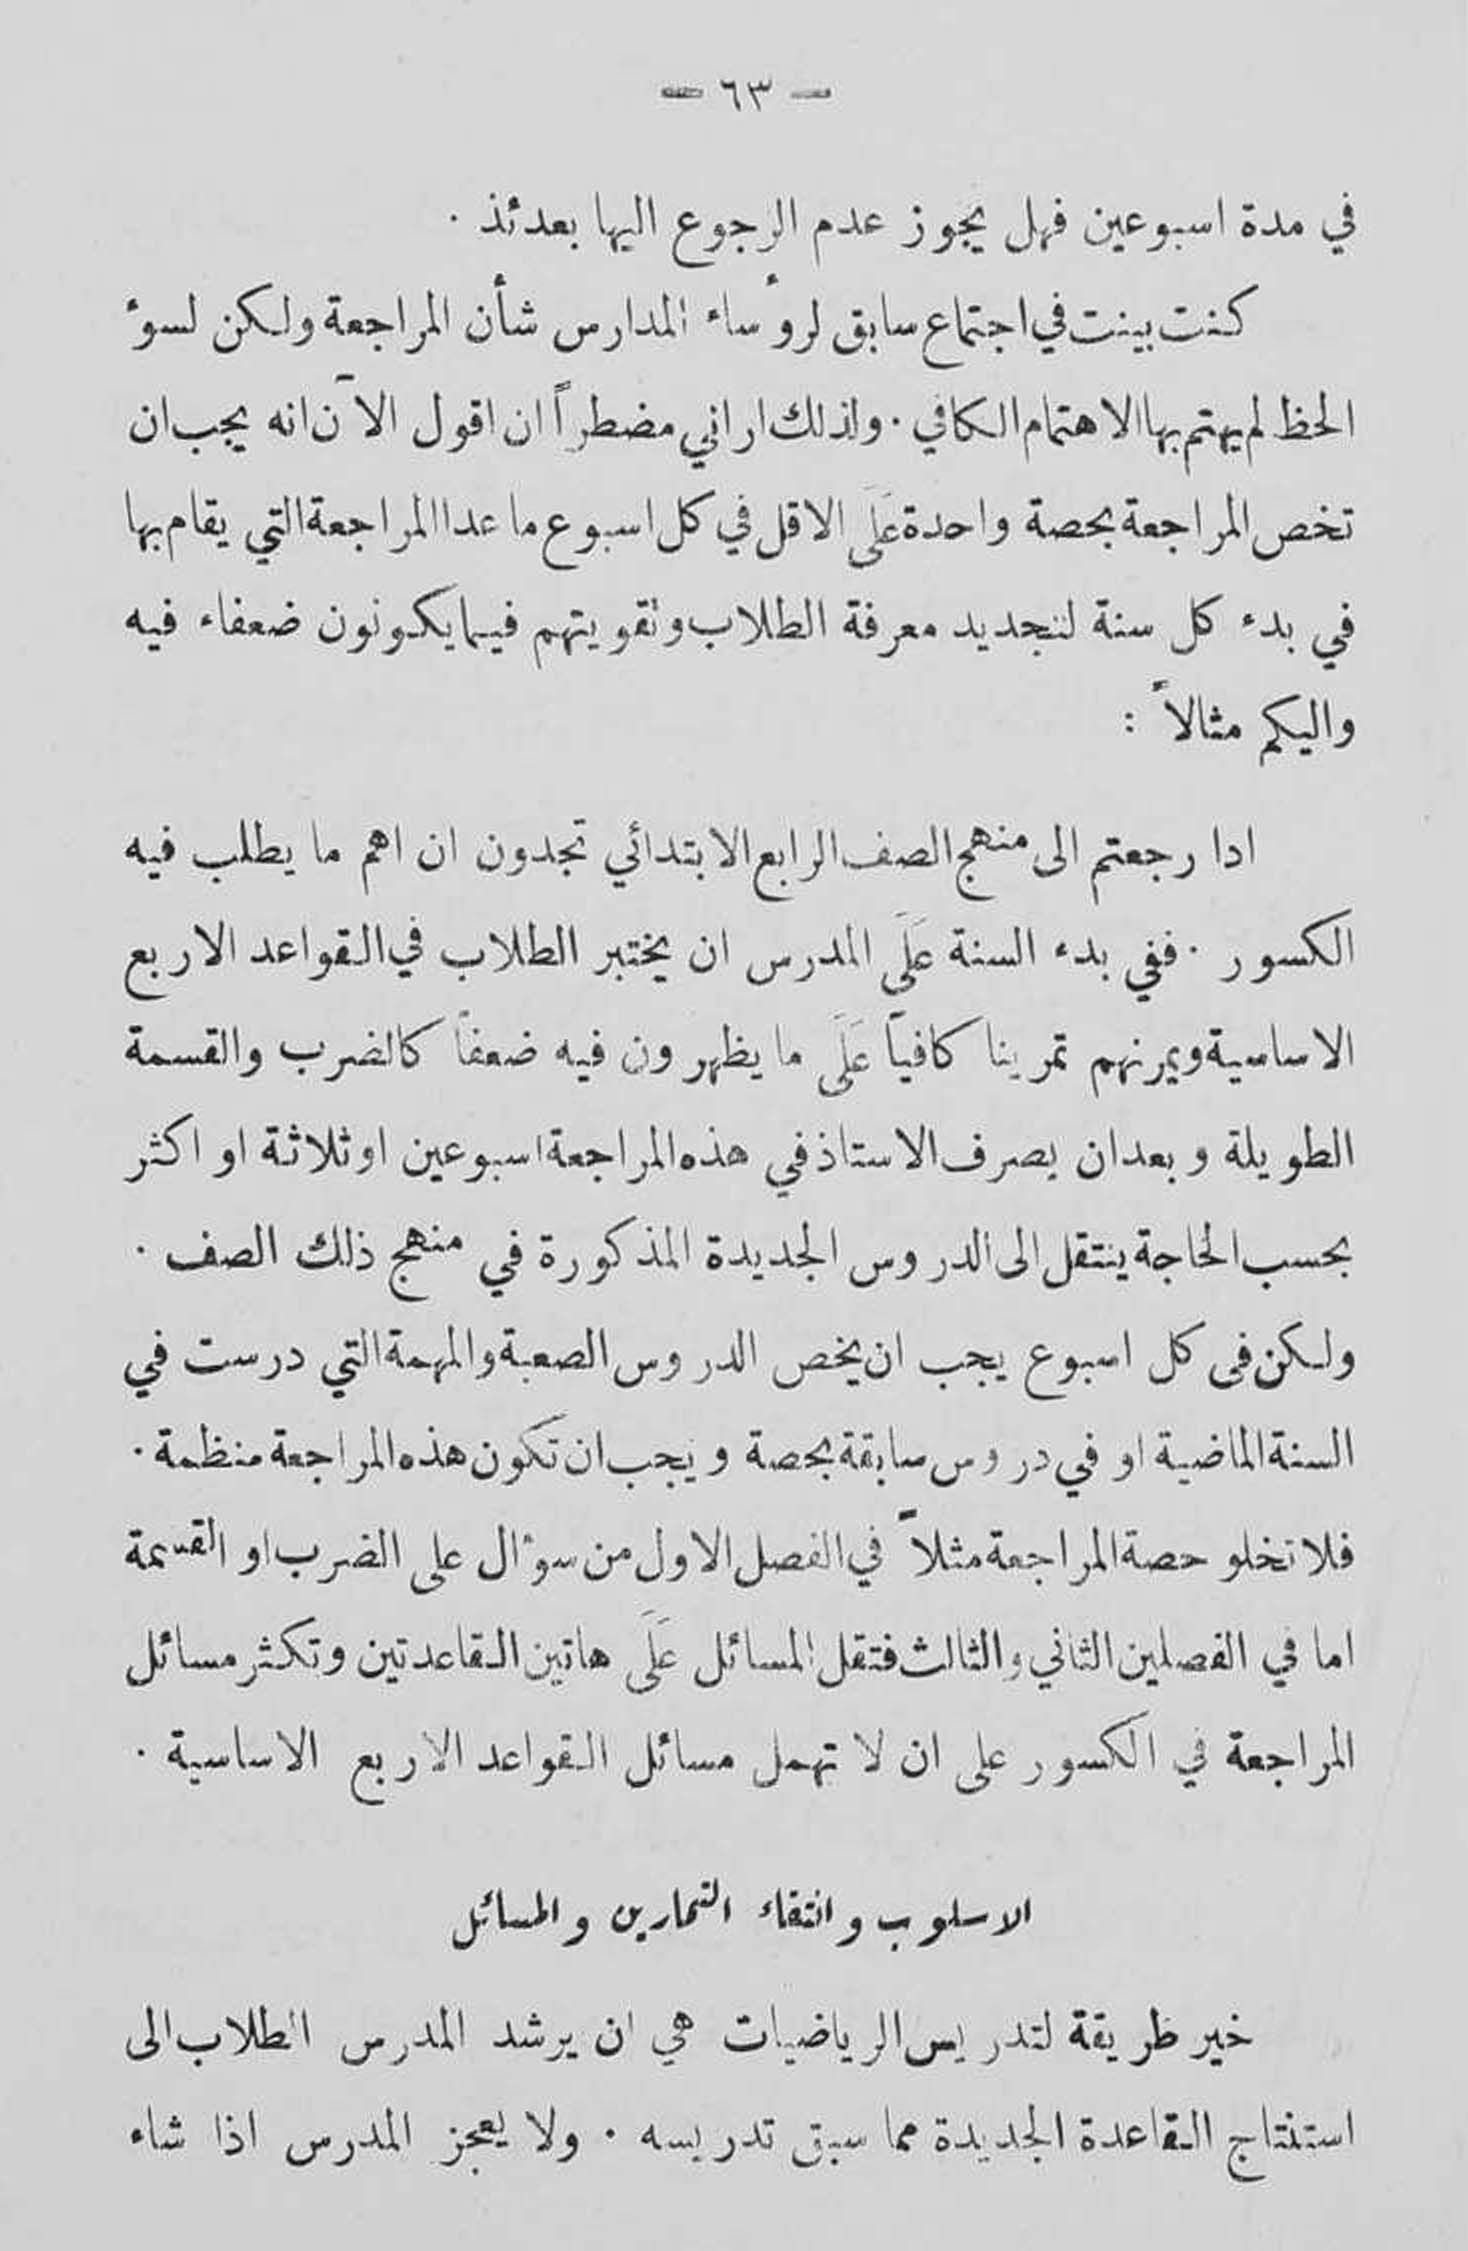 — ٦٣ —
في مدة اسبوعين فهل يجوز عدم الرجوع اليها بعدئذ ·
كنت بينت في اجتماع سابق لروٴساء المدارس شأن المراجعة ولكن لسوٴ
الحظ لم يهتم بها الاهتمام الكافي · ولذلك اراني مضطراً ان اقول الآن انه يجب ان
تخص المراجعة بحصة واحدة عَلَى الاقل في كل اسبوع ما عدا المراجعة التي يقام بها
في بدء كل سنة لتجديد معرفة الطلاب وتقويتهم فيما يكونون ضعفاء فيه
واليكم مثالاً :
ادا رجعتم الى منهج الصف الرابع الابتدائي تجدون ان اهم ما يطلب فيه
الكسور · ففي بدء السنة عَلَى المدرس ان يختبر الطلاب في القواعد الاربع
الاساسية ويمرنهم تمرينا كافياً عَلَى ما يظهرون فيه ضعفاً كالضرب والقسمة
الطويلة وبعد ان يصرف الاستاذ في هذه المراجعة اسبوعين او ثلاثة او اكثر
بحسب الحاجة ينتقل الى الدروس الجديدة المذكورة في منهج ذلك الصف ·
ولكن فى كل اسبوع يجب ان يخص الدروس الصعبة والمهمة التي درست في
السنة الماضية او في دروس سابقة بحصة ويجب ان تكون هذه المراجعة منظمة ·
فلا تخلو حصة المراجعة مثلاً في الفصل الاول من سوٴال على الضرب او القسمة
اما في الفصلين الثاني والثالث فتقل المسائل عَلَى هاتين القاعدتين وتكثر مسائل
المراجعة في الكسور على ان لا تهمل مسائل القواعد الاربع الاساسية ·
الاسلوب وانتقاء التمارين والمسائل
خير طريقة لتدريس الرياضيات هي ان يرشد المدرس الطلاب الى
استنتاج القاعدة الجديدة مما سبق تدريسه · ولا يعجز المدرس اذا شاء